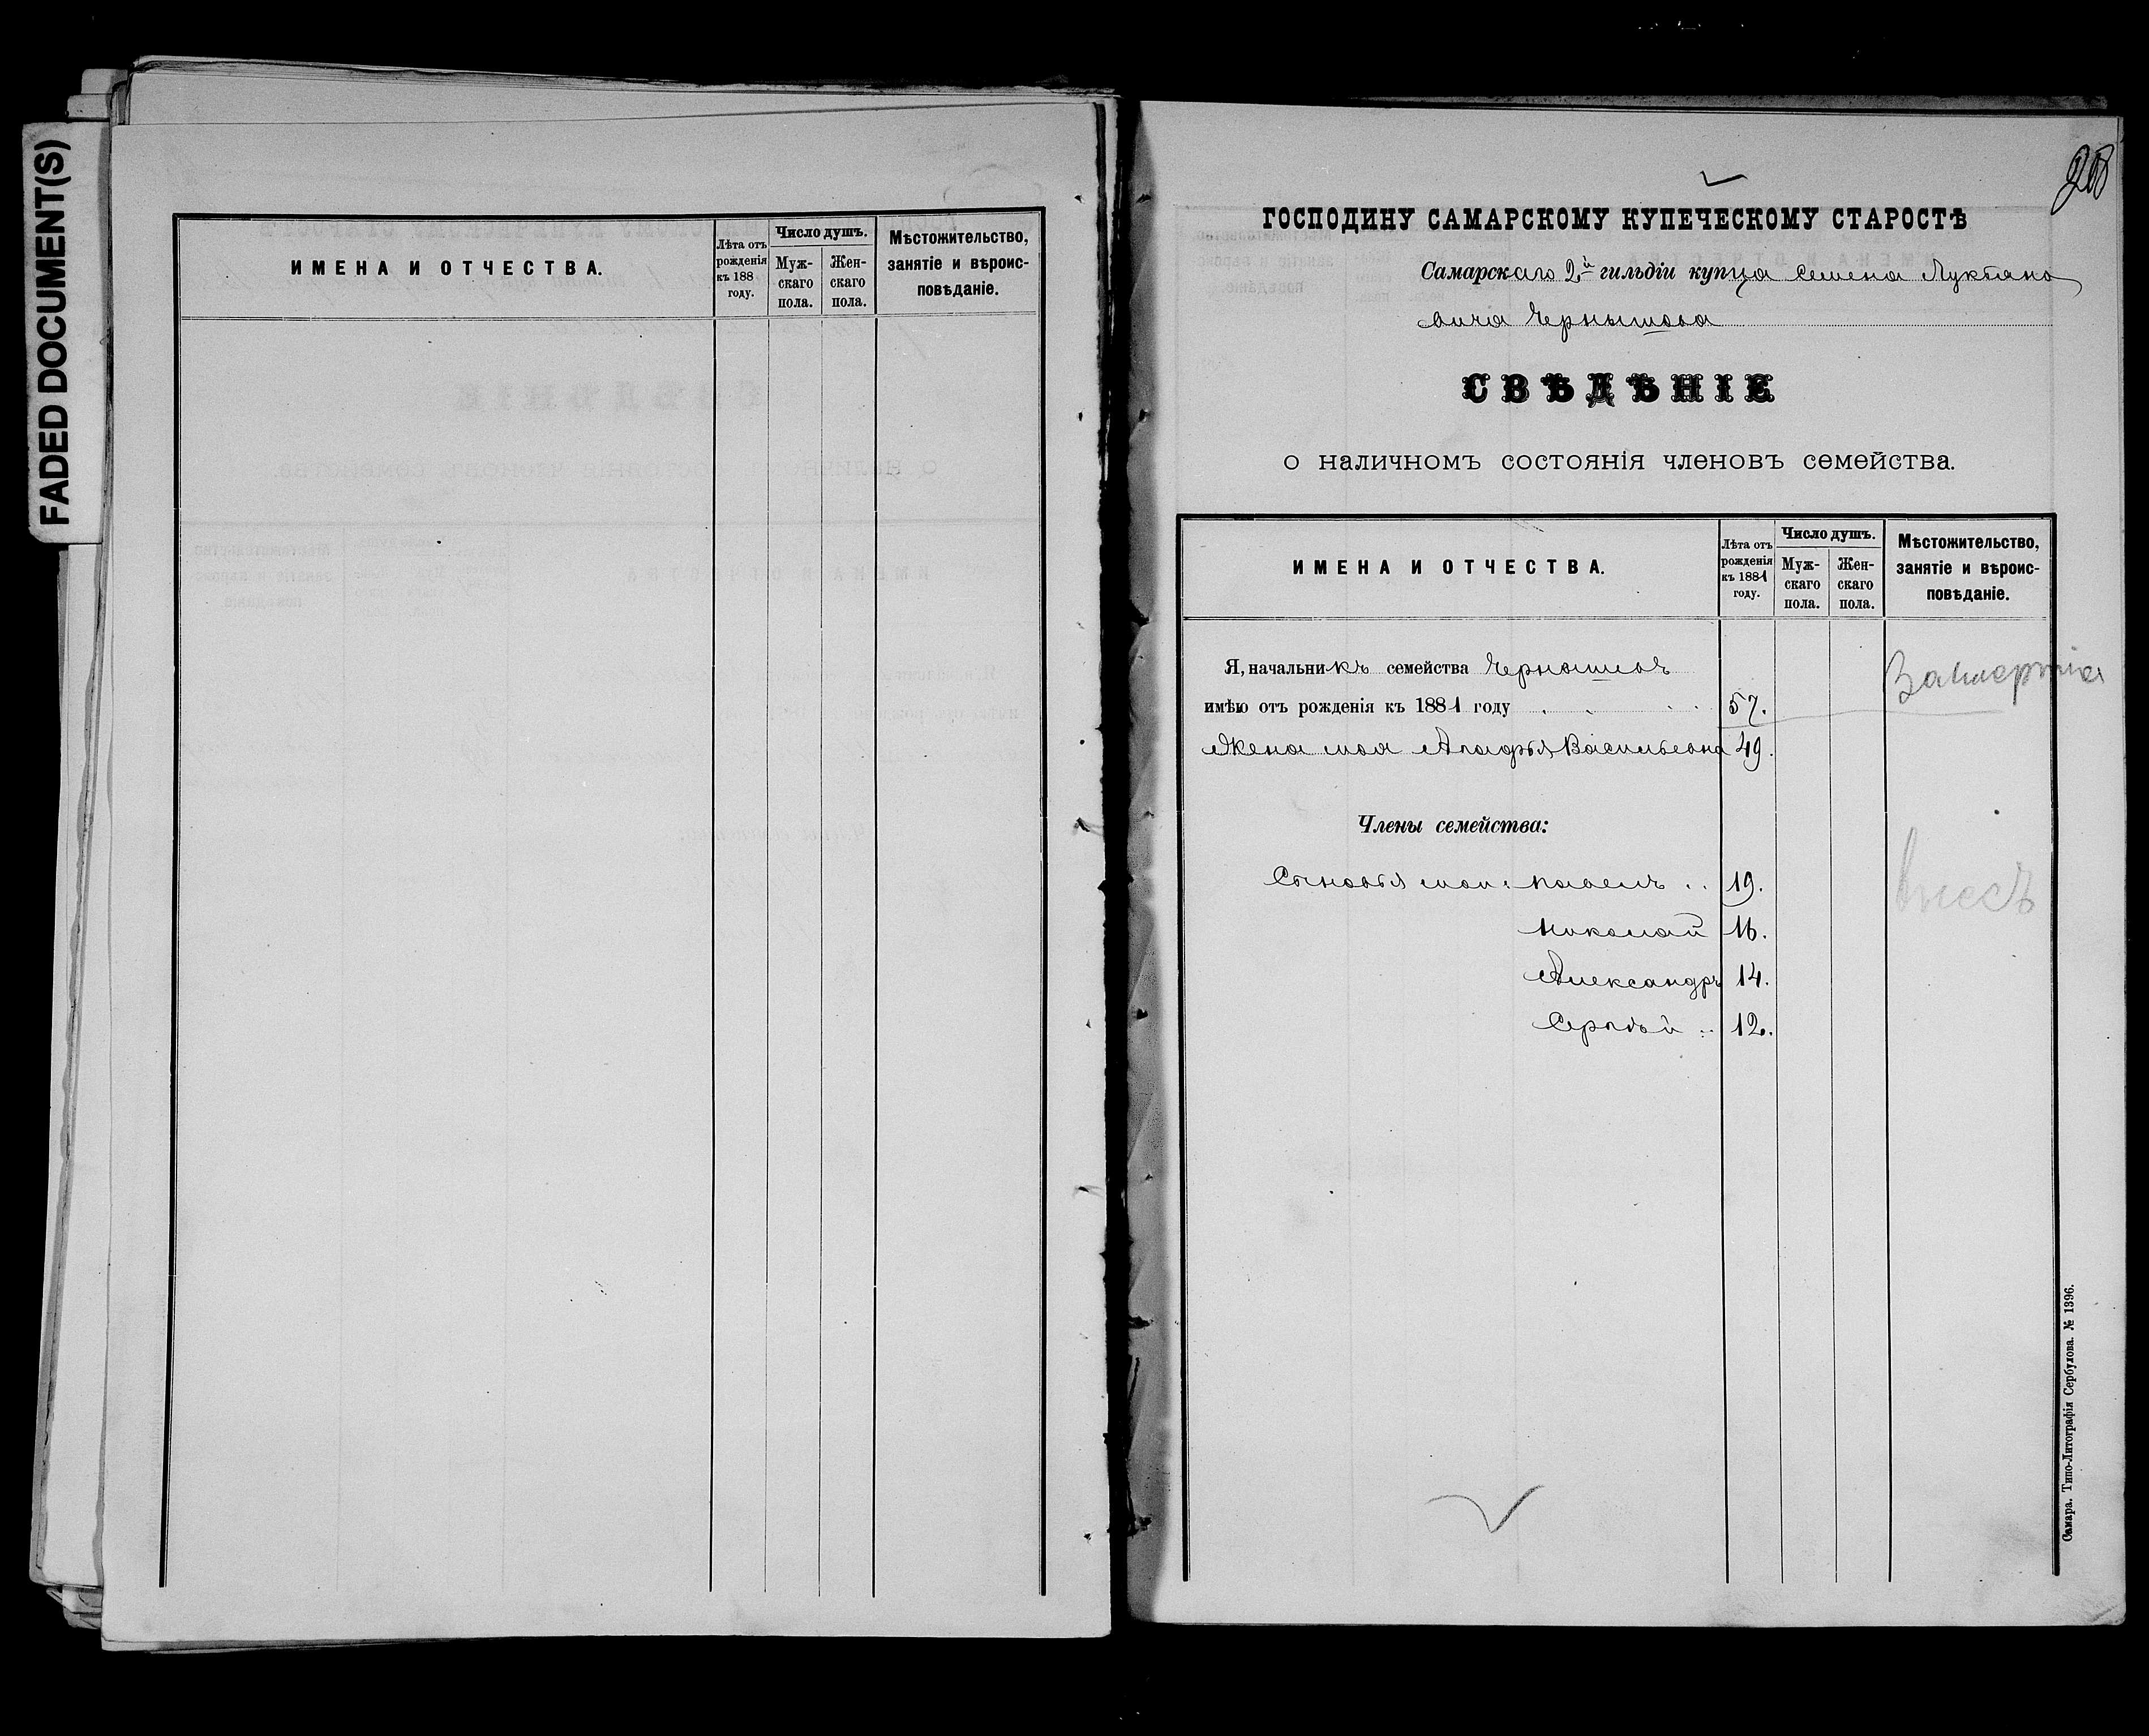 FADED DOCUMENT(S)
ИМЕНА И ОТЧЕСТВА.
Лѣта отъ рожденія къ 188 году.
Число душъ.
Муж-
скаго
пола.
Жен-
скаго
пола.
Мѣстожительство,
занятіе и вѣроис-
повѣданіе.
ГОСПОДИНУ САМАРСКОМУ КУПЕЧЕСКОМУ СТАРОСТѢ
Самарскаго 2й гильдіи купца Семена Лукіяно
вича Чернышова
СВѢДѢНІЕ
о наличномъ состоянія членовъ семейства.
ИМЕНА И ОТЧЕСТВА.
Лѣта отъ рожденія къ 1881 году.
Число душъ.
Муж-
скаго
пола.
Жен-
скаго
пола.
Мѣстожительство,
занятіе и вѣроис-
повѣданіе.
Я, начальникъ семейства Чернышовъ
имѣю отъ рожденія къ 1881 году 57.
Жена моя Васильевна 49.
Члены семейства:
Сыновья мои: Павелъ .. 19.
Николай 16.
Александръ 14.
Сергѣй .. 12.
внесъ
Самара. Типо-Литографія Сербулова. № 1396.